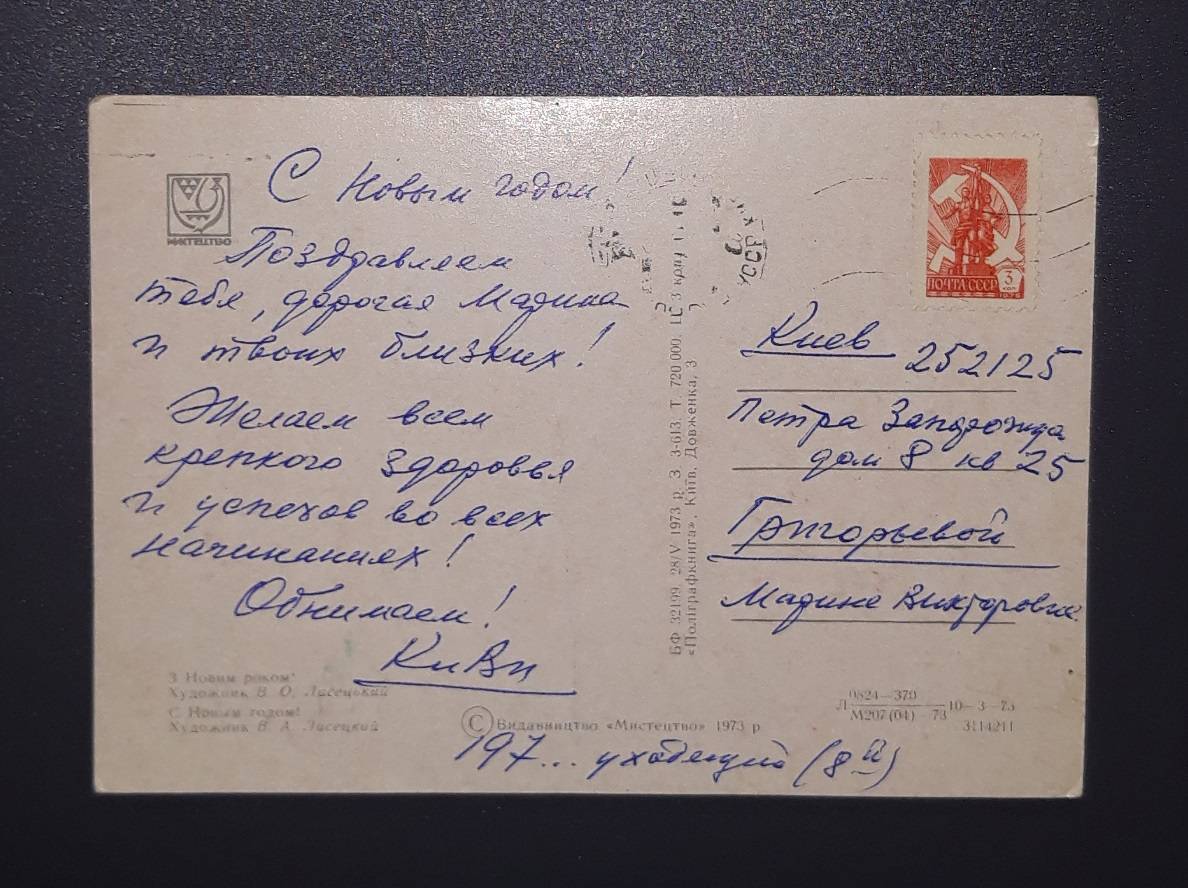 МИСТЕЦТВО
С Новым годом!
Поздравляем
тебя, дорогая Марина
и твоих близких!
Желаем всем
крепкого здоровья
и успехов во всех
начинаниях!
Обнимаем!
КиВи
З Новим роком!
Художник В. О. Лисецький
С Новым годом!
Художник В. А. Лисецкий
197... уходящий (8й)
© Видавництво «Мистецтво» 1973 р
БФ 32199. 28/V 1973 р. З. 3-613. Т. 720 000. Ц. 3 крб
«Поліграфкнига», Київ, Довженка, 3
УССР
ПОЧТА СССР
3
коп
1976
Киев 252125
Петра Запорожца
дом 8 кв 25
Григорьевой
Марине Викторовне
Л 0824—370 10—3—73
М207(04)—73
3114211